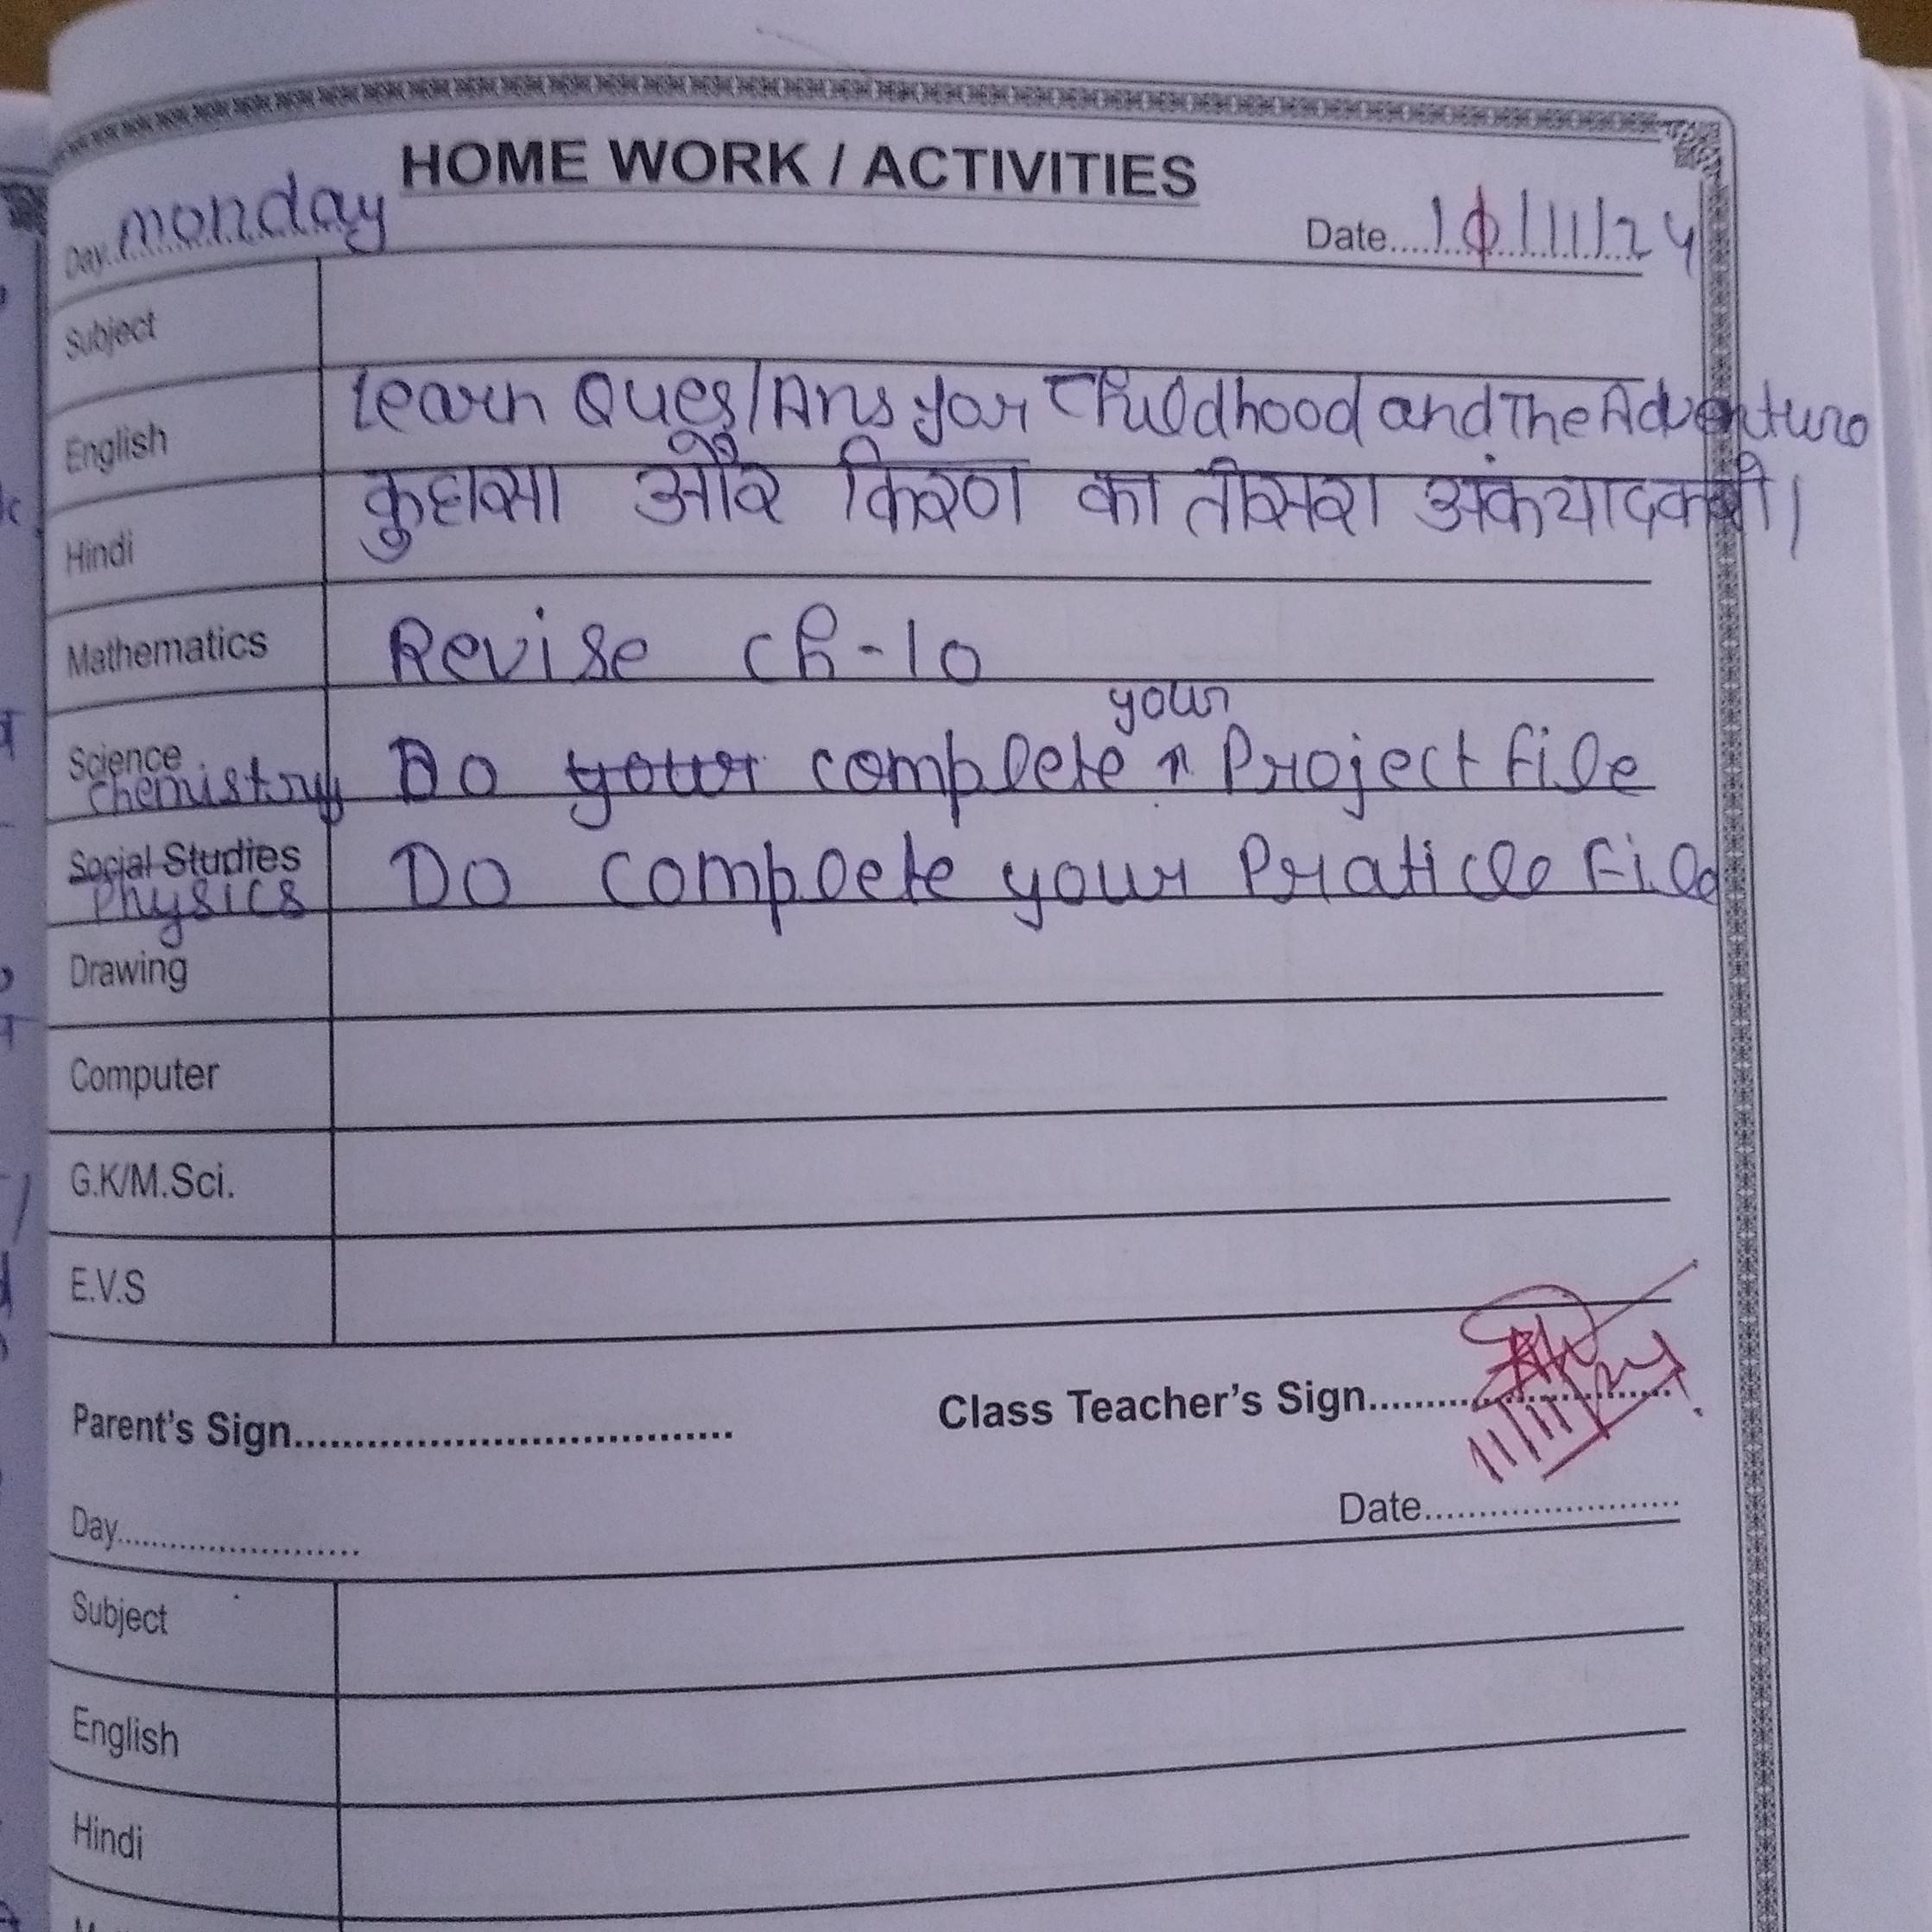 HOME WORK / ACTIVITIES
Day..monday Date....10/11/24
Subject
English Learn Ques/Ans for Childhood and The Adventure
Hindi कुहासा और किरण का तीसरा अंक याद करो।
Mathematics Revise ch-10
your
Science chemistry Do your complete ↑ Project file
Social Studies Physics Do complete your Praticle File
Drawing
Computer
G.K/M.Sci.
E.V.S
Parent's Sign.................................... Class Teacher's Sign..........
11/11/24
Day........................ Date........................
Subject
English
Hindi